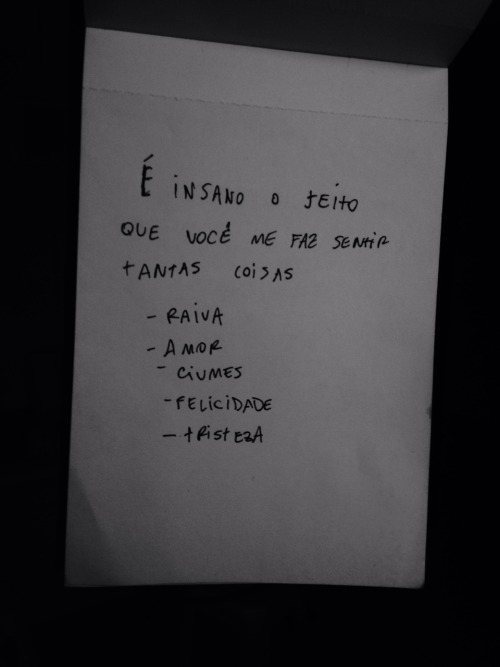 É INSANO O JEITO
QUE VOCÊ ME FAZ SENTIR
TANTAS COISAS
- RAIVA
- AMOR
- CIUMES
- FELICIDADE
- TRISTEZA